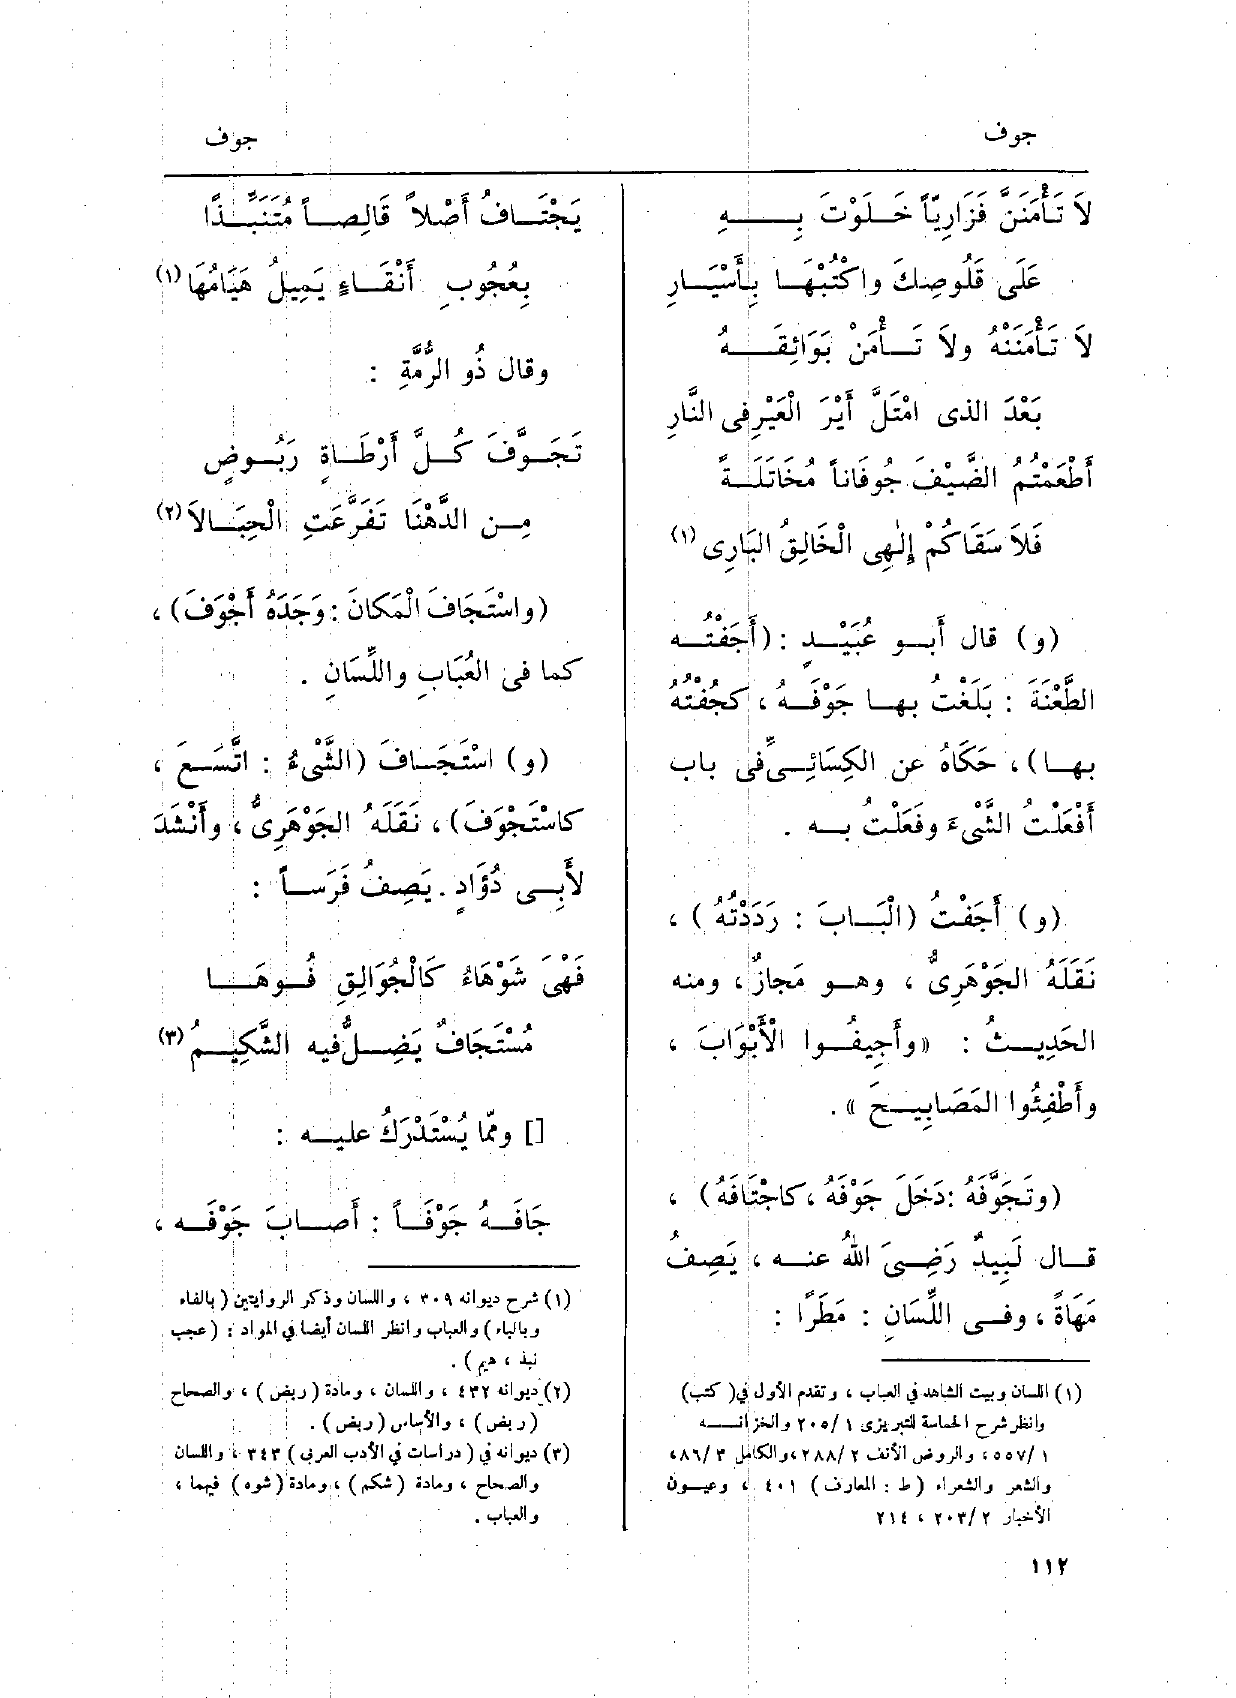 جوف
لاَ تَأْمَنَنَّ فَزَارِيًّا خَلَوْتَ بِهِ
عَلَى قَلُوصِكَ واكْتُبْهَا بِأَسْيَارِ
لاَ تَأْمَنَنْهُ ولاَ تَأْمَنْ بَوَائِقَهُ
بَعْدَ الذى امْتَلَّ أَيْرَ الْعَيْرِ فى النَّارِ
أَطْعَمْتُمُ الضَّيْفَ جُوفَاناً مُخَاتَلَةً
فَلاَ سَقَاكُمْ إِلٰهِى الْخَالِقُ البَارِى (١)
(و) قال أَبو عُبَيْدٍ : (أَجَفْتُه
الطَّعْنَةَ : بَلَغْتُ بها جَوْفَهُ ، كجُفْتُهُ
بها) ، حَكَاهُ عن الكِسَائِىِّ فى باب
أَفْعَلْتُ الشَّىءَ وفَعَلْتُ به .
(و) أَجَفْتُ (الْبَابَ : رَدَدْتُهُ ) ،
نَقَلَهُ الجَوْهَرِىُّ ، وهو مَجازٌ ، ومنه
الحَدِيثُ : «وأَجِيفُوا الْأَبْوَابَ ،
وأَطْفِئُوا المَصَابِيحَ » .
(وتَجَوَّفَهُ : دَخَلَ جَوْفَهُ ، كاجْتَافَهُ ) ،
قال لَبِيدٌ رَضِىَ اللهُ عنه ، يَصِفُ
مَهَاةً ، وفى اللِّسَانِ : مَطَرًا :
(١) اللسان وبيت الشاهد في العباب ، وتقدم الأول في ( كتب)
وانظر شرح الحماسة للتبريزى ١ / ٢٠٥ والخزانه
١ / ٥٥٧ ، والروض الأنف ٢ / ٢٨٨ ، والكامل ٣ / ٨٦ ،
والشعر والشعراء (ط : المعارف ) ٤٠١ ، وعيون
الأخبار ٢ / ٢٠٣ ، ٢١٤
جوف
يَجْتَافُ أَصْلاً قَالِصاً مُتَنَبِّذًا
بِعُجُوبِ أَنْقَاءٍ يَمِيلُ هَيَامُهَا (١)
وقال ذُو الرُّمَّةِ :
تَجَوَّفَ كُلَّ أَرْطَاةٍ رَبُوضٍ
مِن الدَّهْنَا تَفَرَّعَتِ الْحِبَالاَ (٢)
(واسْتَجَافَ الْمَكَانَ : وَجَدَهُ أَجْوَفَ) ،
كما فى العُبَابِ واللِّسَانِ .
(و) اسْتَجَافَ (الشَّىْءُ : اتَّسَعَ ،
كاسْتَجْوَفَ) ، نَقَلَهُ الجَوْهَرِىُّ ، وأَنْشَدَ
لأَبِى دُوَّادٍ . يَصِفُ فَرَساً :
فَهْىَ شَوْهَاءُ كَالْجُوَالِقِ فُوهَا
مُسْتَجَافٌ يَضِلُّ فيه الشَّكِيمُ (٣)
[] وممَّا يُسْتَدْرَكُ عليه :
جَافَهُ جَوْفاً : أَصابَ جَوْفَه ،
(١) شرح ديوانه ٣٠٩ ، واللسان وذكر الروايتين ( بالفاء
وبالباء ) والعباب وانظر اللسان أيضا في المواد : ( عجب
نبذ ، هيم ) .
(٢) ديوانه ٤٣٢ ، واللسان ، ومادة ( ربض ) ، والصحاح
( ربض ) ، والأساس ( ربض ) .
(٣) ديوانه في ( دراسات في الأدب العربى ) ٣٤٣ ، واللسان
والصحاح ، ومادة ( شكم ) ، ومادة ( شوه ) فيهما ،
والعباب .
١١٢